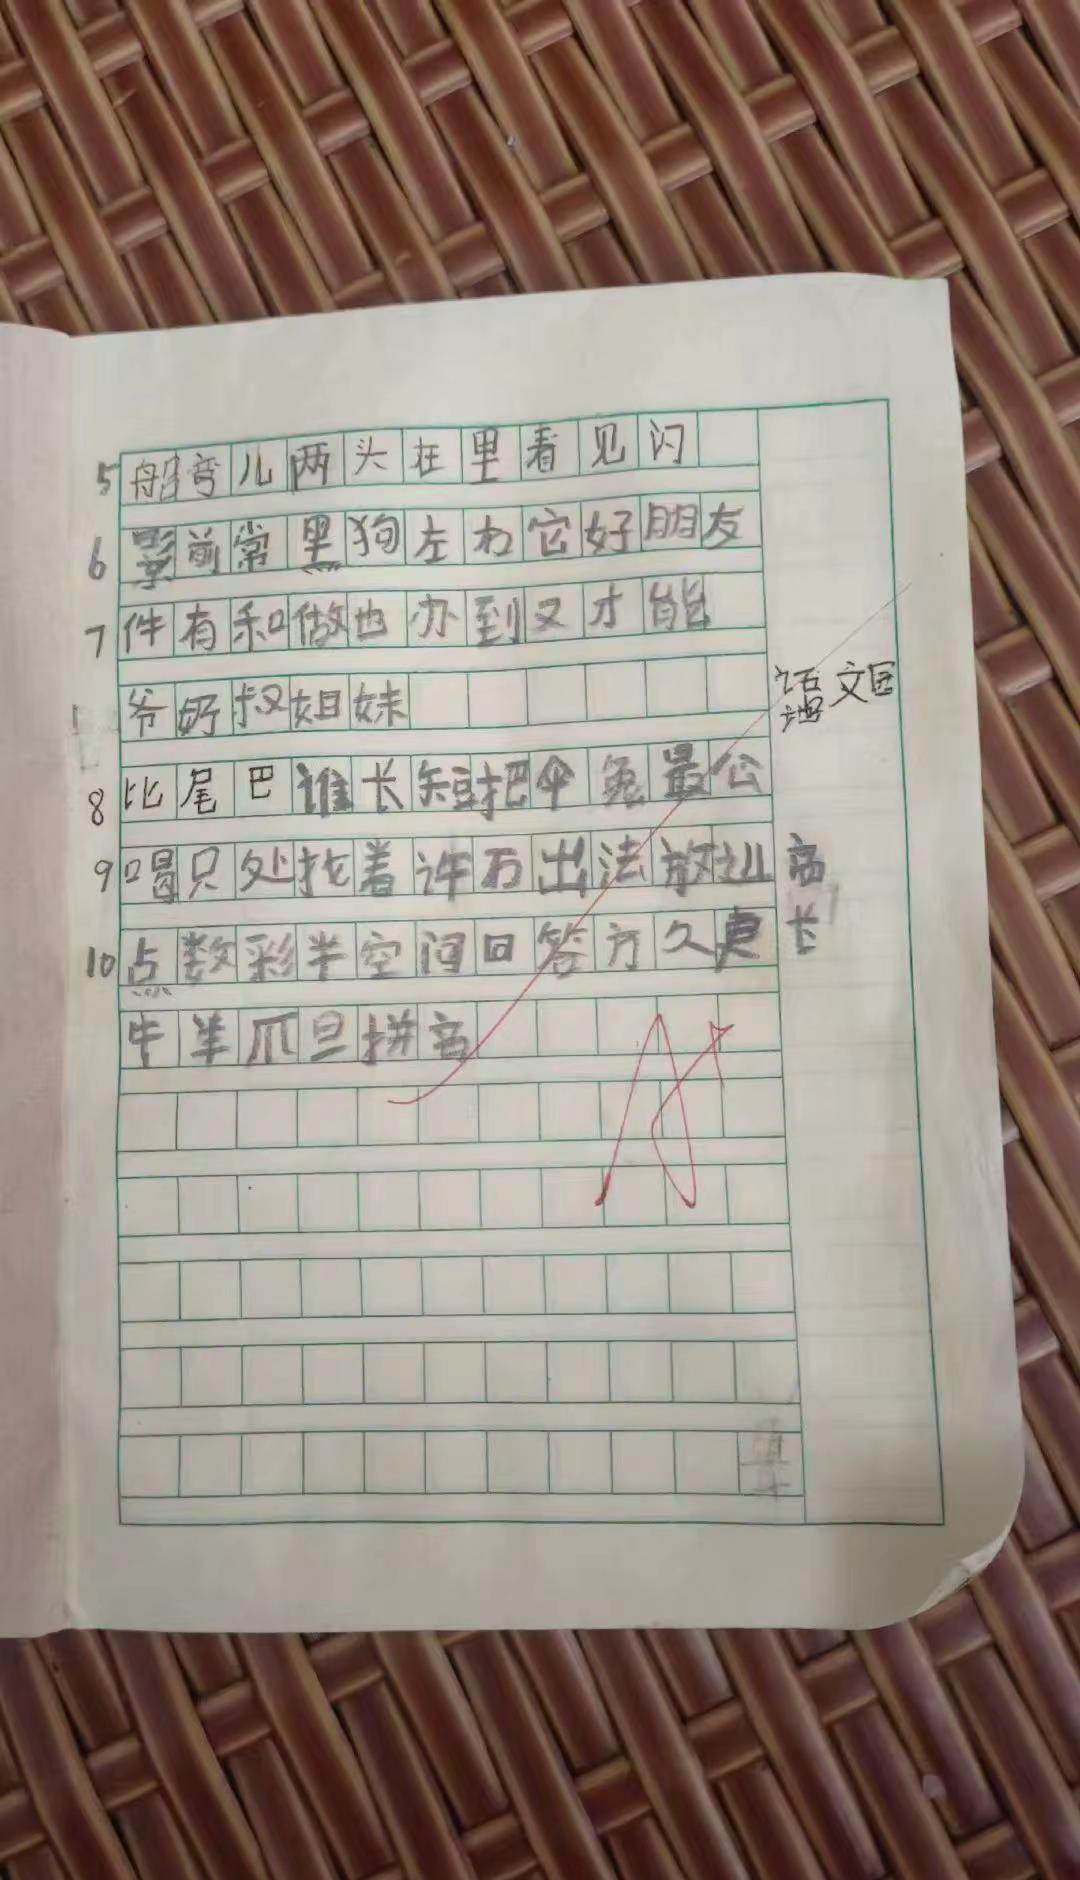 5 船弯儿两头在里看见闪
6 影前常黑狗左右它好朋友
7 件有和做也办到又才能
爷奶叔姐妹
语文园地
8 比尾巴谁长短把伞兔最公
9 喝只处找着许石出法放进高
10 点数彩半空问回答方久更长
牛羊爪旦拼音
A+